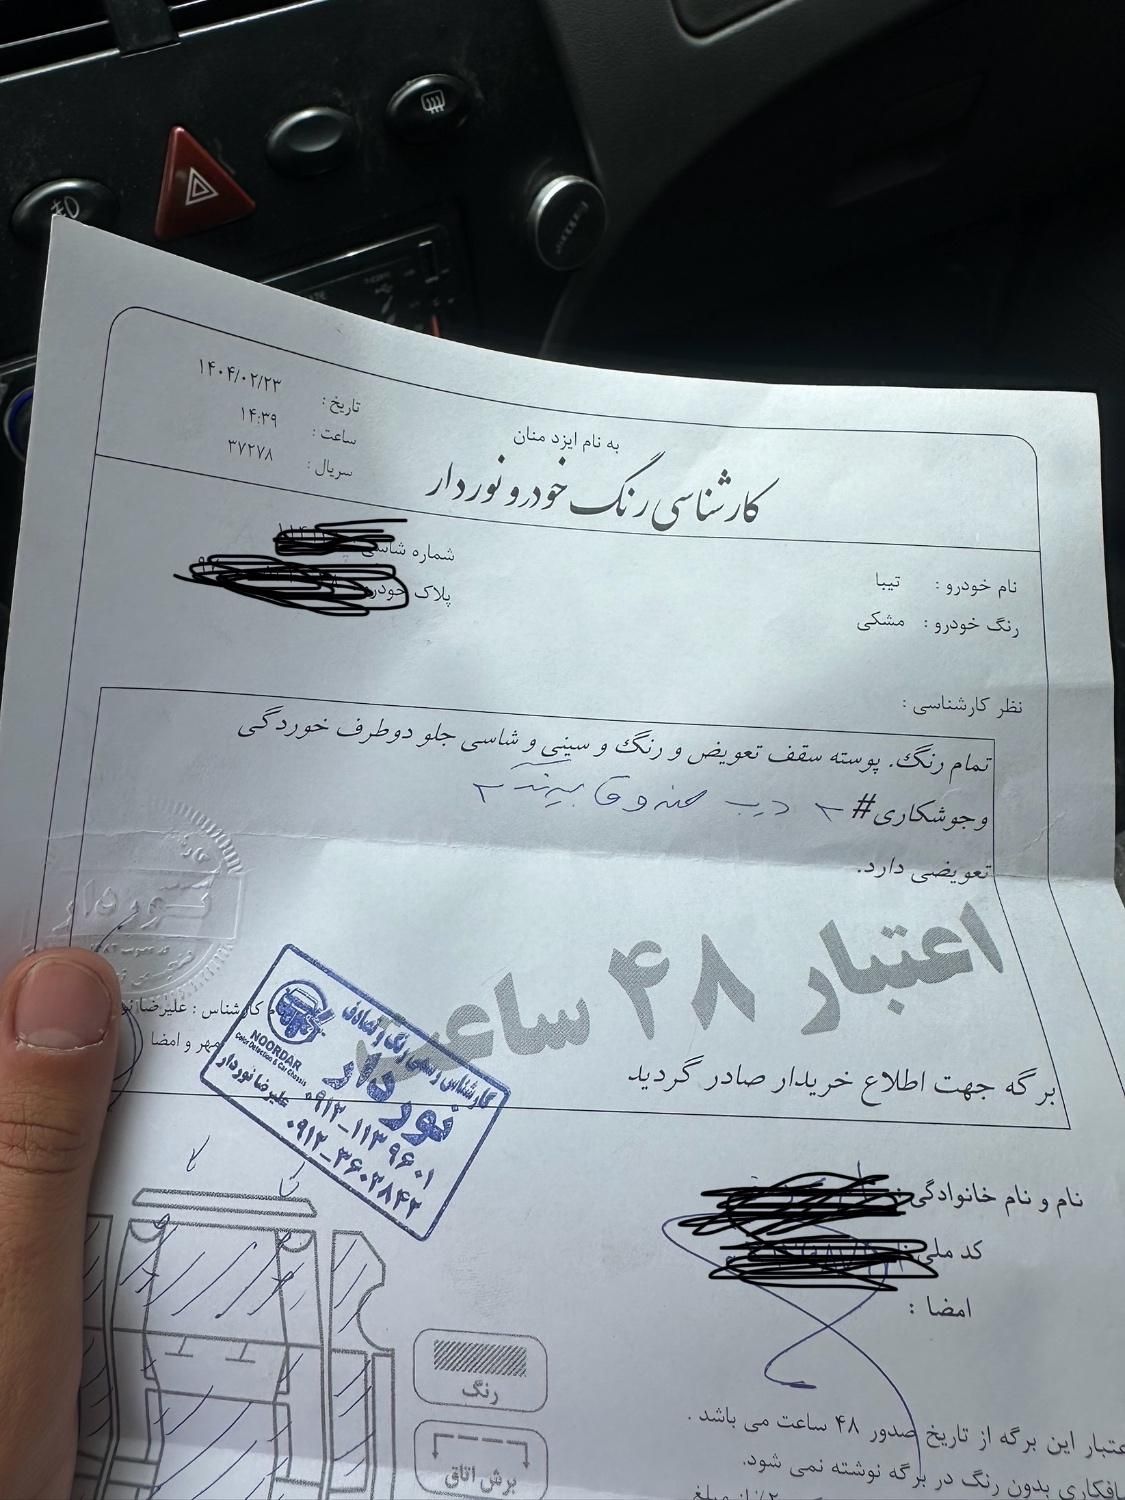 به نام ایزد منان
کارشناسی رنگ خودرو نوردار
تاریخ : ۱۴۰۴/۰۲/۲۳
ساعت : ۱۴:۳۹
سریال : ۳۷۲۷۸
نام خودرو : تیبا
رنگ خودرو : مشکی
شماره شاسی
پلاک خودرو
نظر کارشناسی :
تمام رنگ. پوسته سقف تعویض و رنگ و سینی و شاسی جلو دوطرف خوردگی
و جوشکاری#
تعویضی دارد.
اعتبار ۴۸ ساعت
کارشناس : علیرضا
مهر و امضا
برگه جهت اطلاع خریدار صادر گردید
کارشناس رسمی رنگ و تصادف
نوردار
NOORDAR
Color Detection & Car Chassis
علیرضا نوردار
۰۹۱۲-۱۱۳۹۶۰۱
۰۹۱۲-۳۶۰۲۸۴۲
نوردار
نام و نام خانوادگی
کد ملی
امضا :
رنگ
برش اتاق
اعتبار این برگه از تاریخ صدور ۴۸ ساعت می باشد .
صافکاری بدون رنگ در برگه نوشته نمی شود.